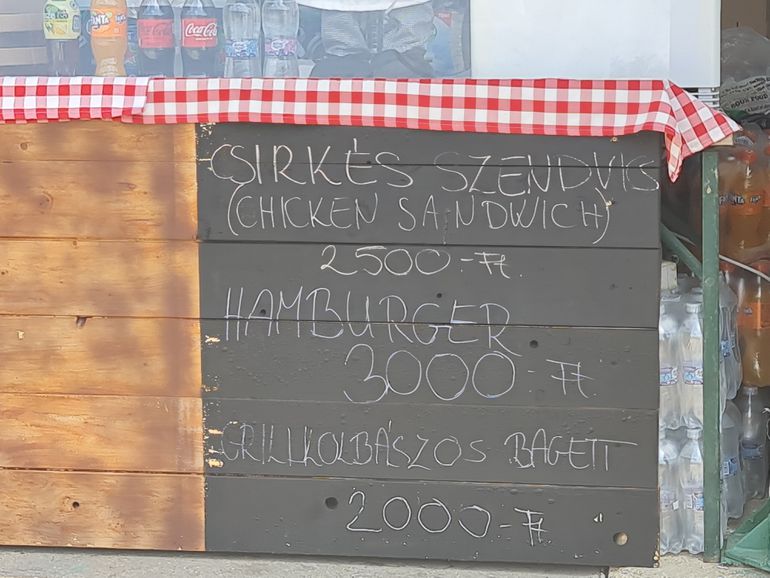 FANTA
Coca-Cola
Coca-Cola
CSIRKÉS SZENDVIS
(CHICKEN SANDWICH)
2500-Ft.
HAMBURGER
3000-Ft.
GRILLKOLBÁSZOS BAGETT
2000-Ft.
FANTA